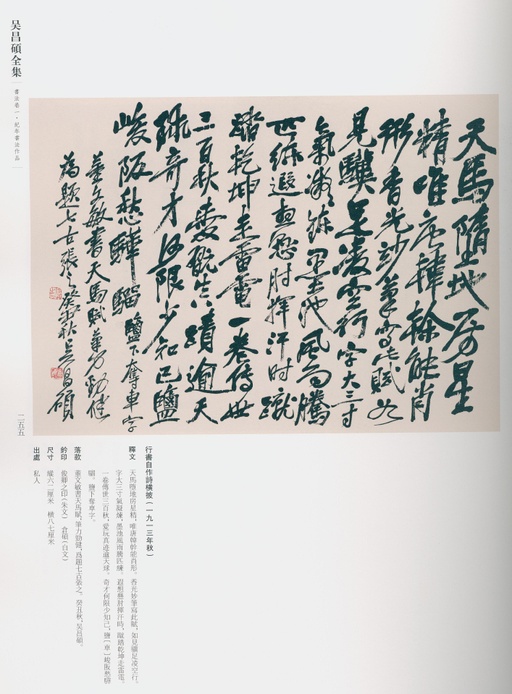 吴昌碩全集
書法卷一·紀年書法作品
天馬墮地房星
精唯唐韓幹能肖
形香光妙筆寫此賦如
見驥足凌空行字大三寸
氣凝鍊墨池風雨騰
匹練遐想懸肘揮汗時蹴
踏乾坤走雷電一卷傳世
三百秋愛玩真蹟逾天
球奇才何限少知己鹽
峻阪愁驊騮鹽下奪車字
董文敏書天馬賦筆力勁健
為題七古張之癸丑秋吴昌碩
二五五
行書自作詩橫披(一九一三年秋)
釋文 天馬墮地房星精,唯唐韓幹能肖形。香光妙筆寫此賦,如見驥足凌空行。
字大三寸氣凝鍊,墨池風雨騰匹練。遐想懸肘揮汗時,蹴踏乾坤走雷電。
一卷傳世三百秋,愛玩真迹逾天球。奇才何限少知己,鹽〔車〕峻阪愁驊
騮。鹽下奪車字。
落款 董文敏書天馬賦,筆力勁健,爲題七古張之。癸丑秋,吴昌碩。
鈐印 俊卿之印(朱文) 倉碩(白文)
尺寸 縱六二厘米 橫八七厘米
出處 私人